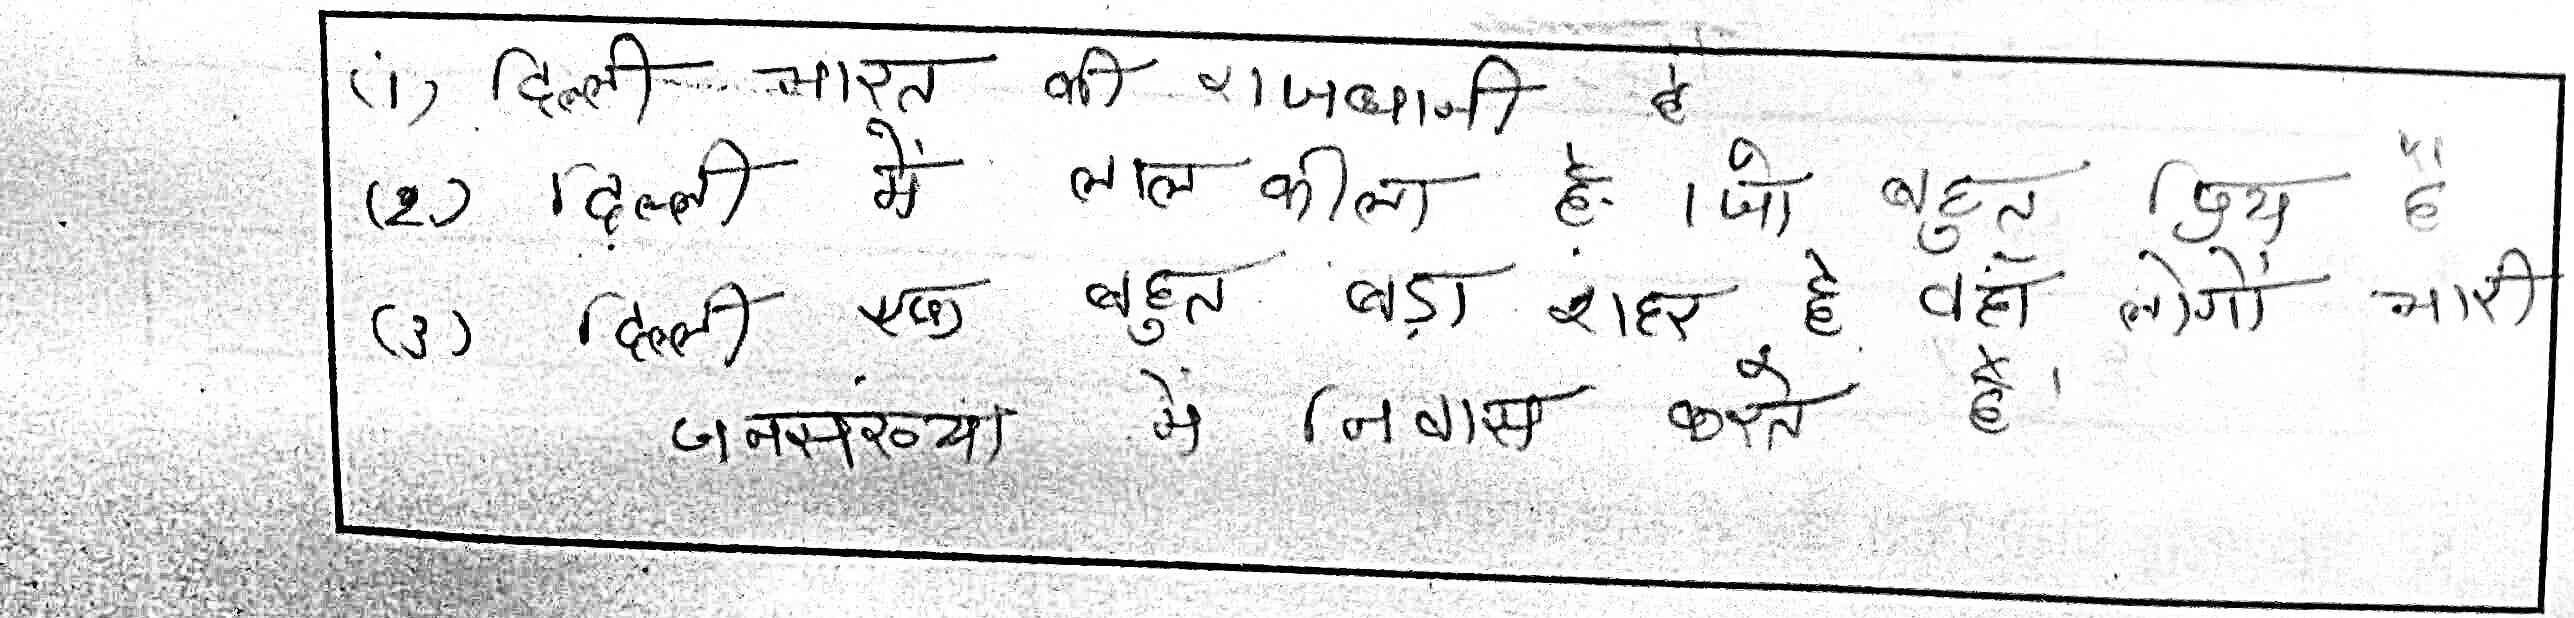 (1) दिल्ली भारत की राजधानी है
(2) दिल्ली में लाल कीला है। जो बहुत प्रिय है
(3) दिल्ली एक बहुत बड़ा शहर है वहाँ लोगों भारी
जनसंख्या में निवास करते है।